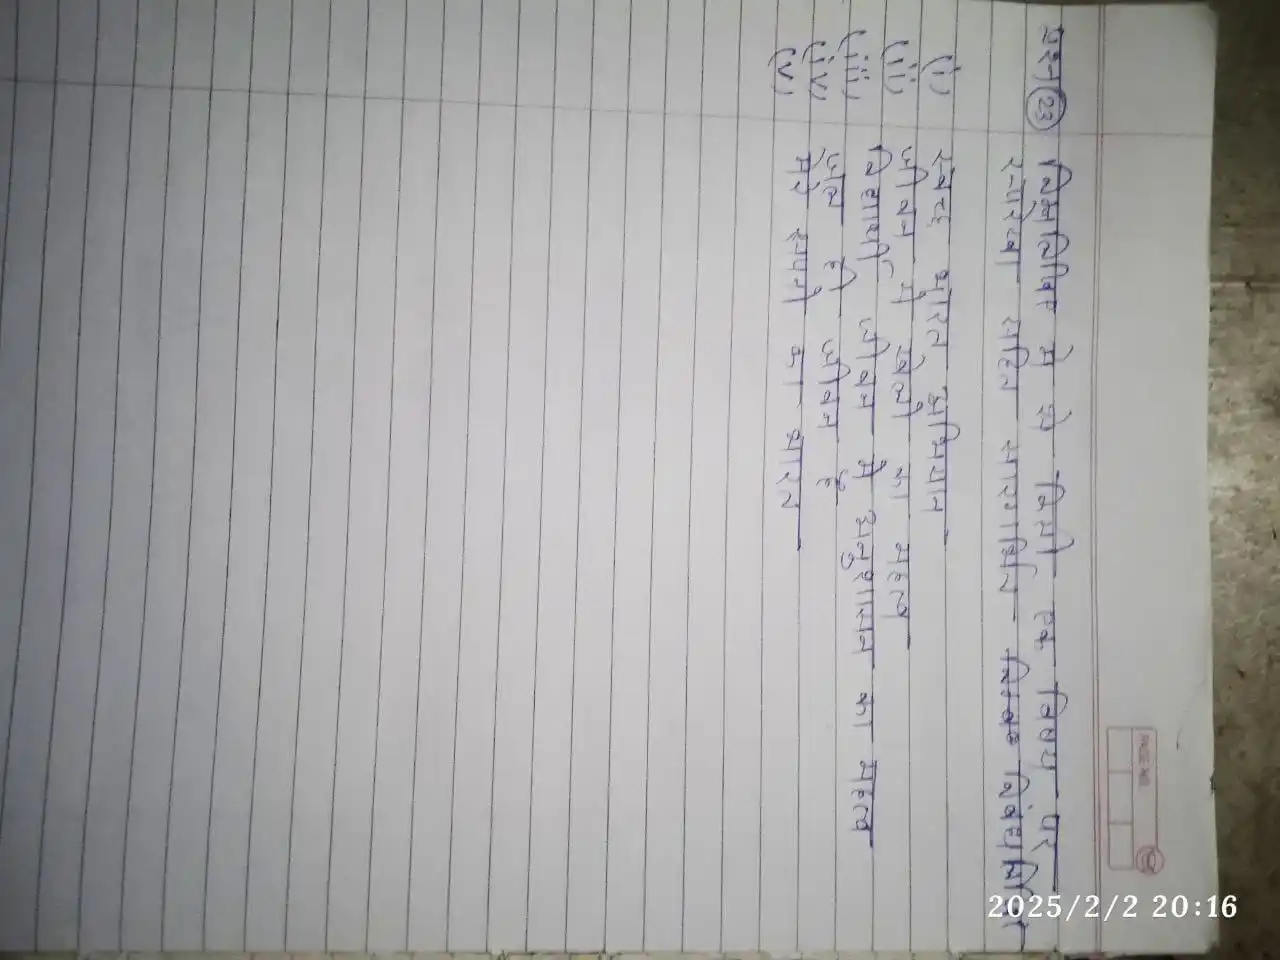 PAGE NO.
प्रश्न 23 निम्नलिखित मे से किसी एक विषय पर
रूपरेखा सहित सारगर्भित निबंध लिखिए
(i) स्वच्छ भारत अभियान
(ii) जीवन में खेलो का महत्व
(iii) विद्यार्थी जीवन मे अनुशासन का महत्व
(iv) जल ही जीवन है
(v) मेरे सपनो का भारत
2025/2/2 20:16